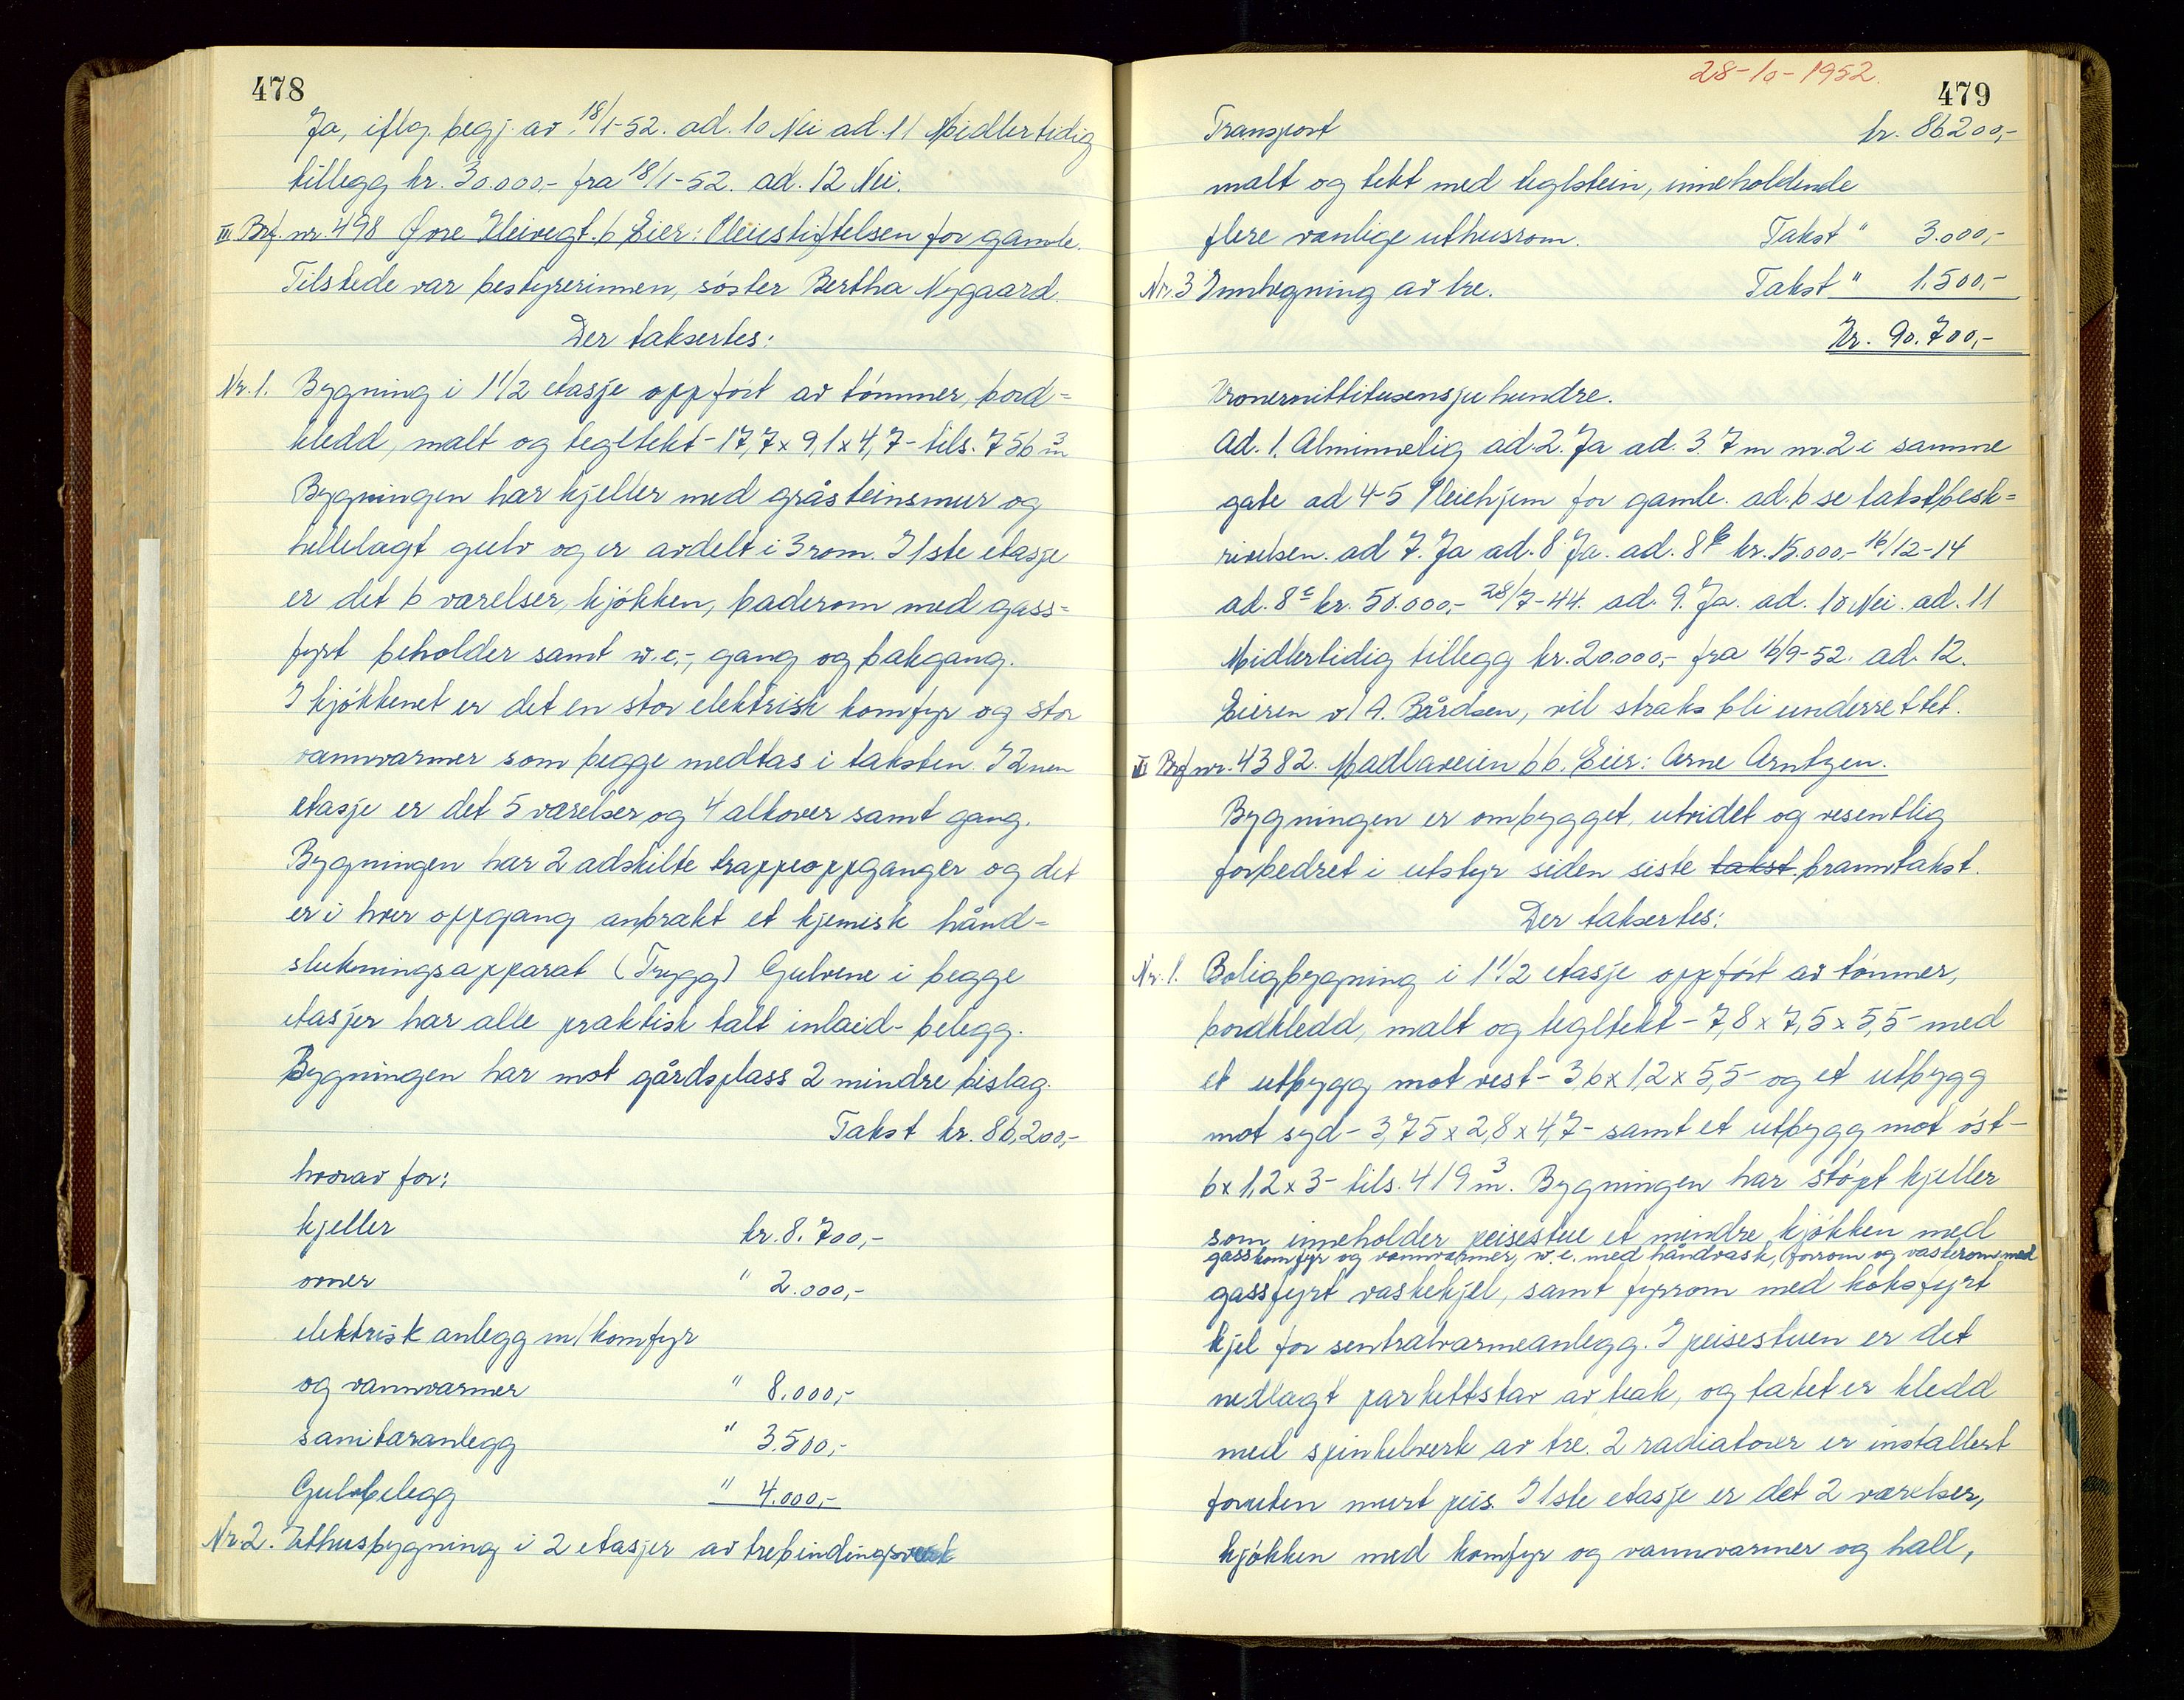 478
Ja, iflg. begj. av 18/1-52. ad. 10 Nei ad. 11 Midlertidig
tillegg kr. 30.000,- fra 18/1-52. ad. 12 Nei.
III Brf. nr. 498 Øvre Kleivegt. 6 Eier: Pleiestiftelsen for gamle.
Tilstede var bestyrerinnen, søster Bertha Nygaard.
Der takseres:
Nr. 1. Bygning i 1 1/2 etasje oppført av tømmer, bord=
kledd, malt og tegltekt - 17,7 x 9,1 x 4,7 - tils. 756 m3
Bygningen har kjeller med gråsteinsmur og
hellelagt gulv og er avdelt i 3 rom. I 1ste etasje
er det 6 værelser, kjøkken, baderom med gass=
fyrt beholder samt w.c.-, gang og bakgang.
I kjøkkenet er det en stor elektrisk komfyr og stor
vannvarmer som begge medtas i taksten. I 2nen
etasje er det 5 værelser og 4 alkover samt gang.
Bygningen har 2 adskilte trappeoppganger og det
er i hver oppgang anbrakt et kjemisk hånd=
slukningsapparat (Trygg) Gulvene i begge
etasjer har alle praktisk talt inlaid-belegg.
Bygningen har mot gårdsplass 2 mindre bislag.
Takst kr. 86,200,-
hvorav for:
kjeller kr. 8.700,-
ovner " 2.000,-
elektrisk anlegg m/komfyr
og vannvarmer " 8.000,-
sanitæranlegg " 3.500,-
Gulvbelegg " 4.000,-
Nr. 2. Uthusbygning i 2 etasjer av trebindingsverk
28-10-1952.
479
Transport kr. 86200,-
malt og tekt med teglstein, inneholdende
flere vanlige uthusrom. Takst " 3.000,-
Nr. 3 Innhegning av tre. Takst " 1.500,-
Kr. 90.700,-
Kronernittitusensjuhundre.
Ad. 1. Alminnelig ad. 2. Ja ad. 3. 7 m nr. 2 i samme
gate ad 4-5 Pleiehjem for gamle. ad. 6 se takstbesk=
rivelsen. ad 7. Ja ad. 8 Ja. ad. 8 b kr. 15.000,- 16/12-14
ad. 8 c kr. 50.000,- 28/7-44. ad. 9. Ja. ad. 10 Nei. ad. 11
Midlertidig tillegg kr. 20.000,- fra 16/9-52. ad. 12.
Eieren v/ A. Bårdsen, vil straks bli underrettet.
III Brf nr. 4382. Madlaveien 66. Eier: Arne Arntzen.
Bygningen er ombygget, utvidet og vesentlig
forbedret i utstyr siden siste takst branntakst.
Der takseres:
Nr. 1. Boligbygning i 1 1/2 etasje oppført av tømmer,
bordkledd, malt og tegltekt - 7,8 x 7,5 x 5,5 - med
et utbygg mot vest - 3,6 x 1,2 x 5,5 - og et utbygg
mot syd - 3,75 x 2,8 x 4,7 - samt et utbygg mot øst -
6 x 1,2 x 3 - tils. 419 m3. Bygningen har støpt kjeller
som inneholder peisestue et mindre kjøkken med
gasskomfyr og vannvarmer, w.c. med håndvask, forrom og vaskerom med
gassfyrt vaskekjel, samt fyrrom med koksfyrt
kjel for sentralvarmeanlegg. I peisestuen er det
nedlagt parkettstav av teak, og taket er kledd
med spinkelverk av tre. 2 radiatorer er installert
foruten murt peis. I 1ste etasje er det 2 værelser,
kjøkken med komfyr og vannvarmer og hall,